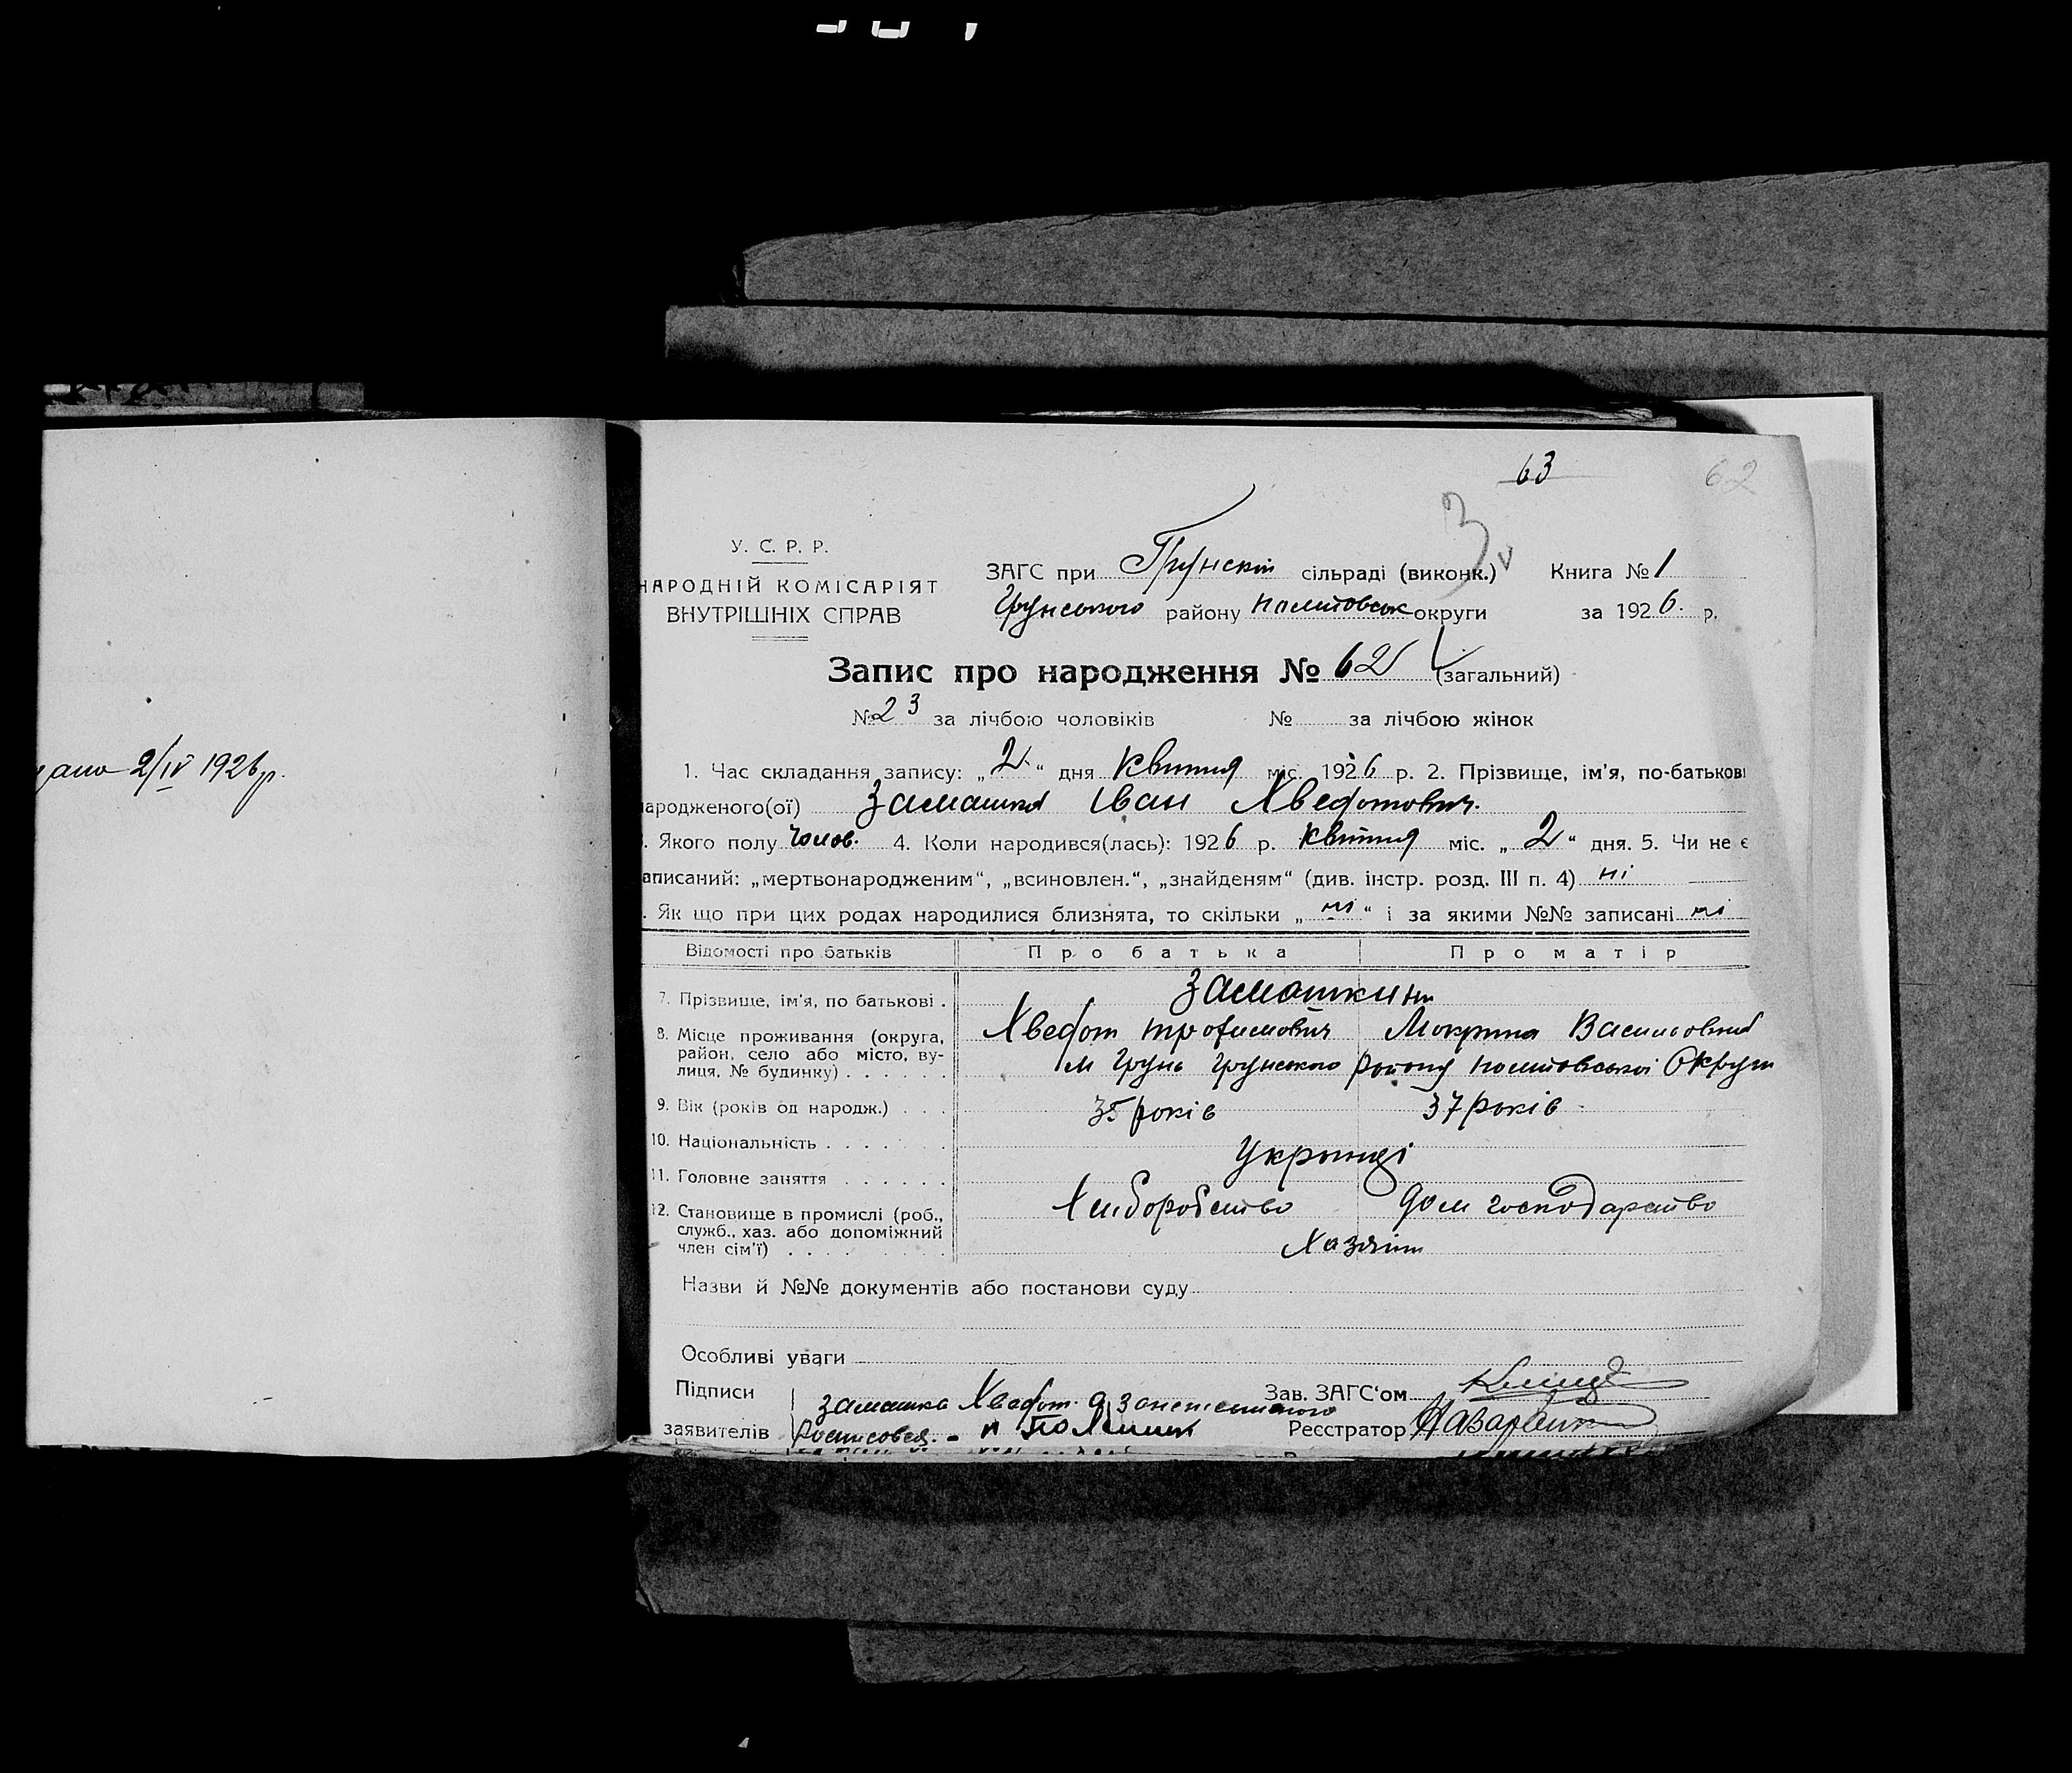 63
62
3
У. С. Р. Р.
НАРОДНІЙ КОМІСАРІЯТ
ВНУТРІШНІХ СПРАВ
ЗАГС при Грунській сільраді (виконк.) Книга № 1
Грунського району округи за 1926. р.
Запис про народження № 62 (загальний)
№ 23 за лічбою чоловіків № за лічбою жінок
1. Час складання запису: „2" дня квітня міс. 1926 р. 2. Прізвище, ім'я, по-батькові
ародженого(ої) Замашка Іван Хведотович.
. Якого полу чолов. 4. Коли народився(лась): 1926 р. квітня міс. „2" дня. 5. Чи не є
аписаний: „мертвонародженим", „всиновлен.", „знайденям" (див. інстр. розд. III п. 4) ні
. Як що при цих родах народилися близнята, то скільки „ні" і за якими №№ записані ні
Відомості про батьків Про батька Про матір
7. Прізвище, ім'я, по батькові . Замашкини
8. Місце проживання (округа, район, село або місто, вулиця, № будинку) . . . . . . Хведот Трофимович Мокрина Василовна
м Грунь Грунського району Округи
9. Вік (років од народж.) . . . 35 років 37 років
10. Національність . . . . . . . Українці
11. Головне заняття . . . . . . Хліборобство Дом господарство
12. Становище в промислі (роб., служб., хаз. або допоміжний член сім'ї) . . . . . . . . Хазяїн
Назви й №№ документів або постанови суду
Особливі уваги
Підписи Замашка Хведот а Зав. ЗАГС'ом
заявителів Росписовся. - Реєстратор
2/IV 1926 р.